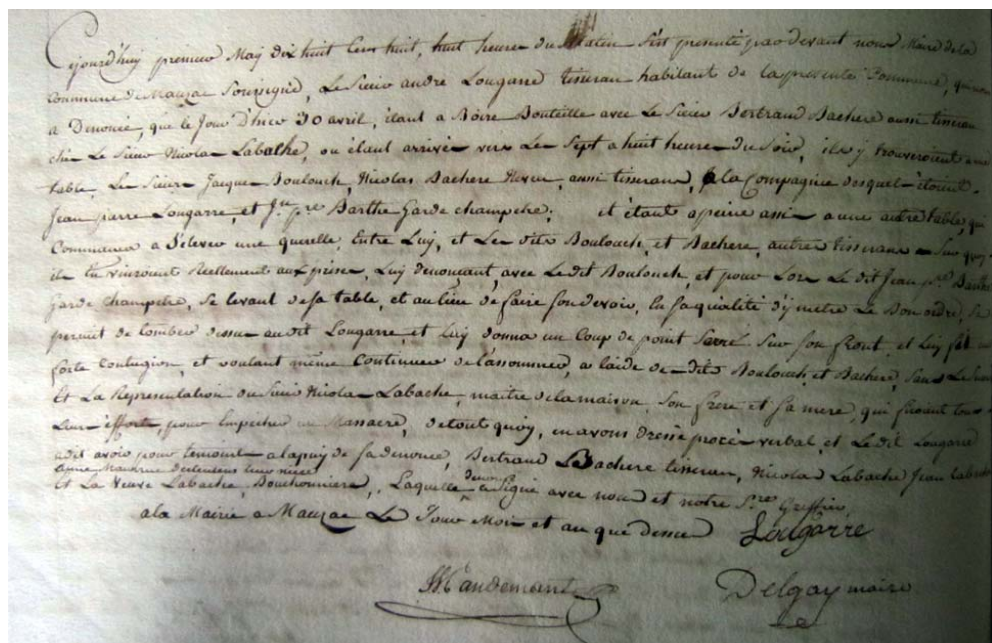 Cejourd'huy premier May dix huit Cent huit, huit heures du Matin S'est presenté par devant nous Maire de la
Commune de Mauzac Soussigné, Le Sieur andre Lougarre tisseran habitant de la presente Commune, qui nous
a Denoncé, que le Jour D'hier 30 avril, étant a Boire Bouteille avec Le Sieur Bertrand Bachere aussi tisseran
chés Le Sieur Nicolas Labathe, ou étant arrivés vers Les Sept a huit heures du Soir, ils y trouveroient a une
table, Le Sieur Jacques Boulouch, Nicolas Bachere Neveu, aussi tisserans, a la Compagnie desquels étoient
Jean pierre Lougarre, et Jn. pre. Barthe Garde champetre; et étant apeine assis a une autre table, qui
Commança a S'elever une querelle, Entre Luy, et Les dits Boulouch, et Bachere, autres tisserans Sur quoy
ils En vinrent Reellement aux prises, Luy denoncant avec Le dit Boulouch, et pour Lors Le dit Jean pre. Barthe
Garde champetre, Se levant de Sa table, et au lieu de faire Son devoir, En Sa qualité d'y metre Le Bon ordre, Se
permit de tomber dessus au dit Lougarre, et Luy donna un Coup de point Serré Sur Son front, et Luy fit une
forte Contugion, et voulant même Continuer de l'assommer, a l'aide des dits Boulouch, et Bachere, Sans Le
Et La Represantation du Sieur Nicolas Labache, maitre de la maison, Son frere et Sa mere, qui firent tous
Leurs éfforts, pour Empecher un Massacre, de tout quoy, en avons dressé procés verbal, et Le dit Lougarre
a dit avoir pour temoins a l'apuy de Sa denonce, Bertrand Bachere tisseran, Nicolas Labache Jean Labache
Et La Veuve Labache, Bouchonniere, Laquelle denonce a Signé avec nous et notre Sre. Greffier,
a la Mairie a Mauzac Le Jour Mois et an que dessus Lougarre
Mandement Delgay maire